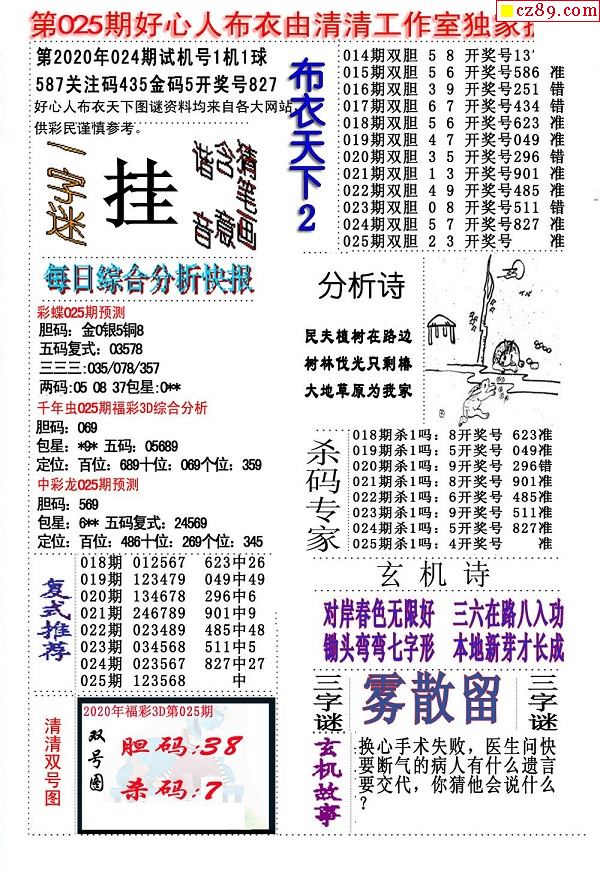 cz89.com
第025期好心人布衣由清清工作室独家
第2020年024期试机号1机1球
587关注码435金码5开奖号827
好心人布衣天下图谜资料均来自各大网站,
供彩民谨慎参考。
一字迷
挂
谐音
含意
猜笔画
布衣天下2
014期双胆 5 8 开奖号13
015期双胆 5 6 开奖号586 准
016期双胆 3 9 开奖号251 错
017期双胆 6 7 开奖号434 错
018期双胆 5 6 开奖号623 准
019期双胆 4 7 开奖号049 准
020期双胆 3 5 开奖号296 错
021期双胆 1 3 开奖号901 准
022期双胆 4 9 开奖号485 准
023期双胆 0 8 开奖号511 错
024期双胆 5 7 开奖号827 准
025期双胆 2 3 开奖号 准
每日综合分析快报
彩蝶025期预测
胆码: 金0银5铜8
五码复式: 03578
三三三:035/078/357
两码:05 08 37包星:0**
千年虫025期福彩3D综合分析
胆码: 069
包星: *9* 五码: 05689
定位: 百位: 689十位: 069个位: 359
中彩龙025期预测
胆码: 569
包星: 6** 五码复式: 24569
定位: 百位: 486十位: 269个位: 345
分析诗
民夫植树在路边
树林伐光只剩椿
大地草原为我家
杀码专家
018期杀1吗: 8开奖号 623准
019期杀1吗: 5开奖号 049准
020期杀1吗: 9开奖号 296错
021期杀1吗: 8开奖号 901准
022期杀1吗: 6开奖号 485准
023期杀1吗: 9开奖号 511准
024期杀1吗: 5开奖号 827准
025期杀1吗: 4开奖号 准
复式推荐
018期 012567 623中26
019期 123479 049中49
020期 134678 296中6
021期 246789 901中9
022期 023489 485中48
023期 034568 511中5
024期 023567 827中27
025期 123568 中
玄机诗
对岸春色无限好 三六在路八入功
锄头弯弯七字形 本地新芽才长成
三字谜
雾散留
三字谜
清清双号图
2020年福彩3D第025期
双号图
胆码:38
杀码:7
玄机故事
换心手术失败, 医生问快
要断气的病人有什么遗言
要交代, 你猜他会说什么
?